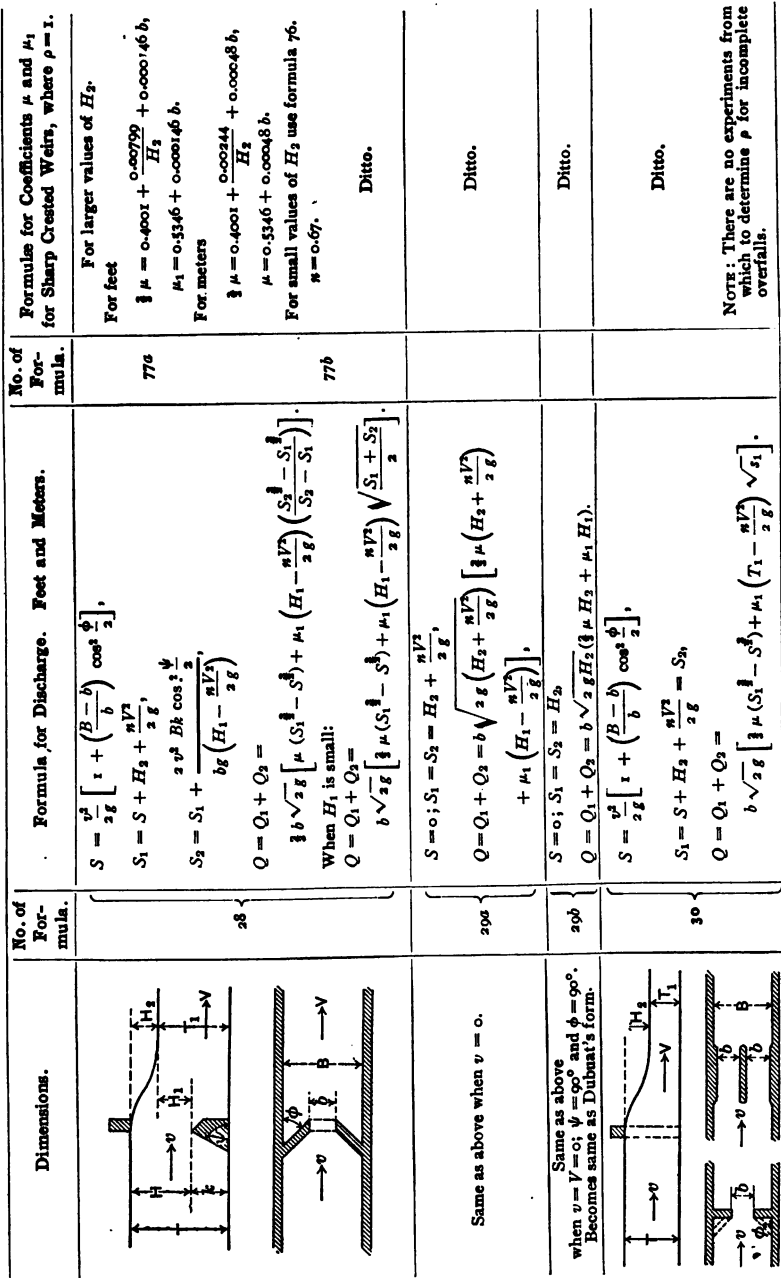 Dimensions.
No. of
For-
mula.
Formula for Discharge. Feet and Meters.
No. of
For-
mula.
Formulæ for Coefficients μ and μ₁
for Sharp Crested Weirs, where ρ = 1.
H
H₁
H₂
T
T₁
v
V
ψ
φ
v
b
B
V
28
S = v²/2g [1 + ((B − b)/b) cos² φ/2],
S₁ = S + H₂ + nV²/2g,
S₂ = S₁ + (2 v² Bk cos² ψ/2)/(bg (H₁ − nV²/2g)),
Q = Q₁ + Q₂ =
⅔ b√2g [μ (S₁^3/2 − S^3/2) + μ₁ (H₁ − nV²/2g) ((S₂^3/2 − S₁^3/2)/(S₂ − S₁))].
When H₁ is small:
Q = Q₁ + Q₂ =
b√2g [⅔ μ (S₁^3/2 − S^3/2) + μ₁ (H₁ − nV²/2g) √((S₁ + S₂)/2)].
77a
77b
For larger values of H₂.
For feet
⅔ μ = 0.4001 + 0.00799/H₂ + 0.000146 b,
μ₁ = 0.5346 + 0.000146 b.
For meters
⅔ μ = 0.4001 + 0.00244/H₂ + 0.00048 b,
μ = 0.5346 + 0.00048 b.
For small values of H₂ use formula 76.
n = 0.67.
Ditto.
Same as above when v = 0.
29a
S = 0; S₁ = S₂ = H₂ + nV²/2g,
Q = Q₁ + Q₂ = b√(2g (H₂ + nV²/2g)) [⅔ μ (H₂ + nV²/2g)
+ μ₁ (H₁ − nV²/2g)],
Ditto.
Same as above
when v = V = 0; ψ = 90° and φ = 90°.
Becomes same as Dubuat's form.
29b
S = 0; S₁ = S₂ = H₂,
Q = Q₁ + Q₂ = b√2gH₂ (⅔ μ H₂ + μ₁ H₁).
Ditto.
T
H₂
T₁
v
V
v
φ
b
v
b
b
B
30
S = v²/2g [1 + ((B − b)/b) cos² φ/2],
S₁ = S + H₂ + nV²/2g = S₂,
Q = Q₁ + Q₂ =
b√2g [⅔ μ (S₁^3/2 − S^3/2) + μ₁ (T₁ − nV²/2g) √s₁].
Ditto.
NOTE: There are no experiments from
which to determine ρ for incomplete
overfalls.